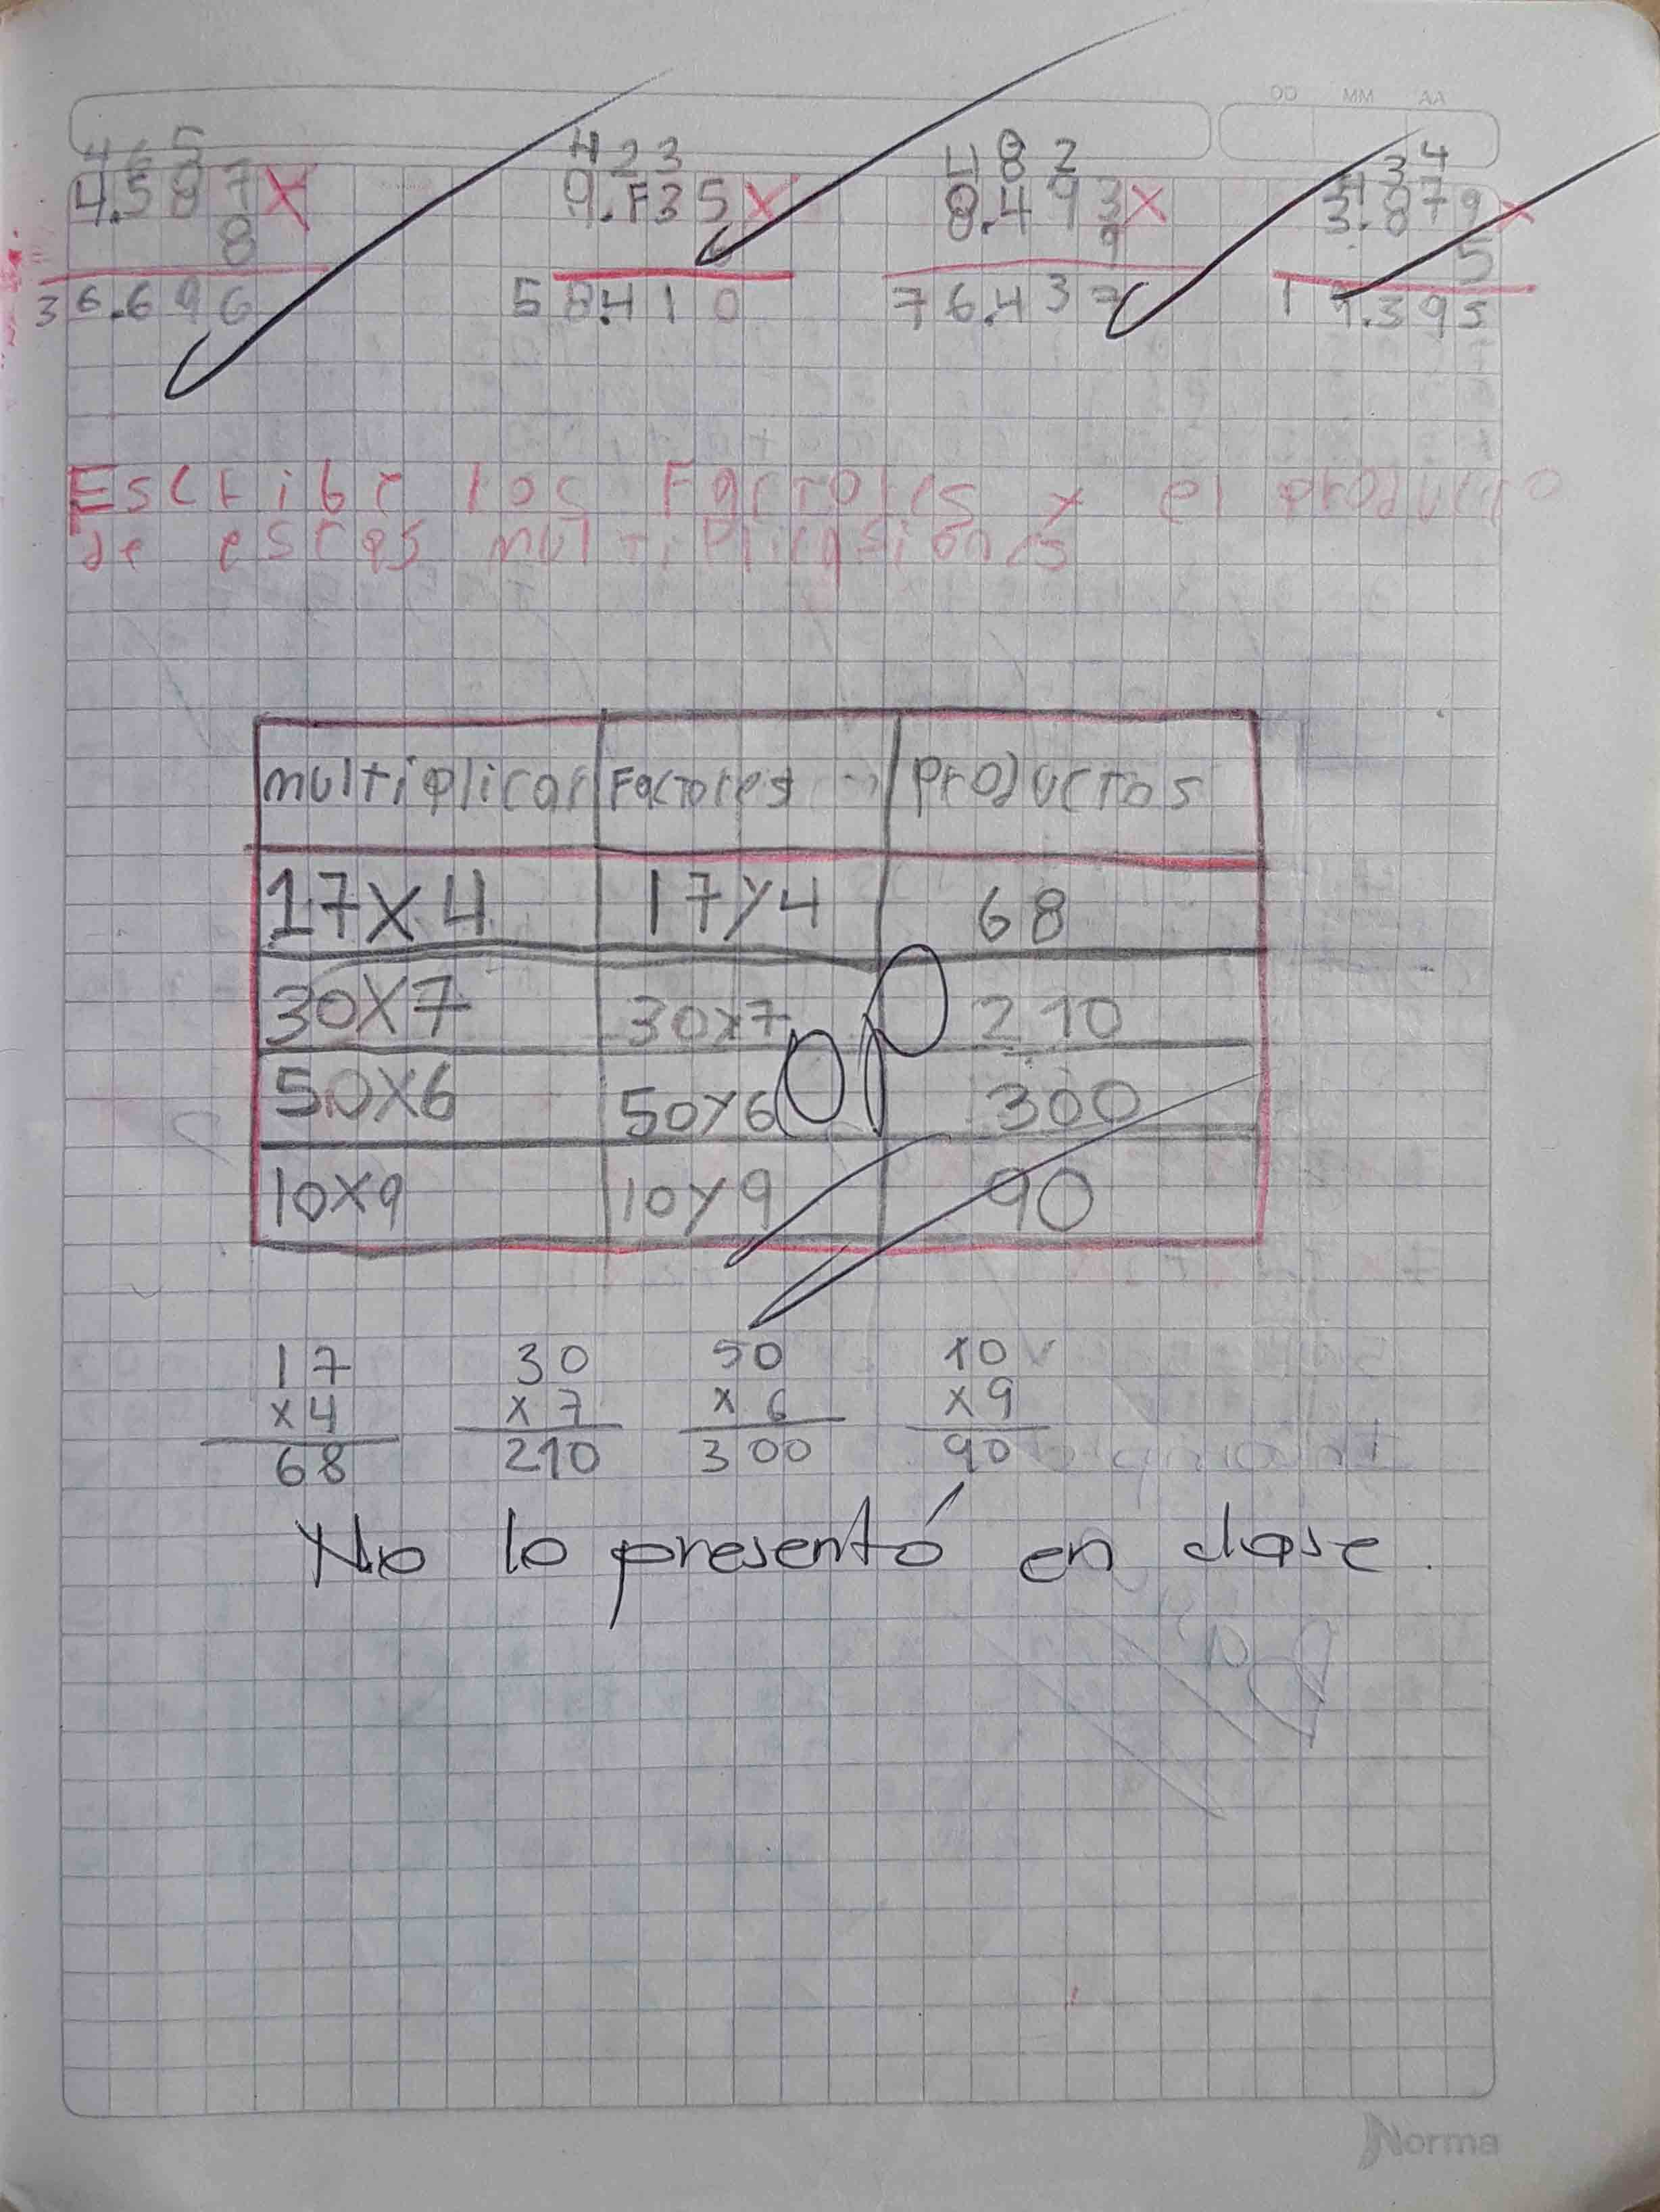 DD MM AA
4 6 5
4.587 X
8
36.696
4 2 3
9.735 X
58.410
4 8 2
8.493 X
9
76.437
4 3 4
3.879 X
5
19.395
Escribe los Factores y el producto
de estas multiplicasiones
multiplicar Factores productos
17X4 17y4 68
30X7 30x7 210
50X6 50y6 300
10X9 10y9 90
17 30 50 10
x4 x 7 x 6 x9
68 210 300 90
No lo presentó en clase.
Norma